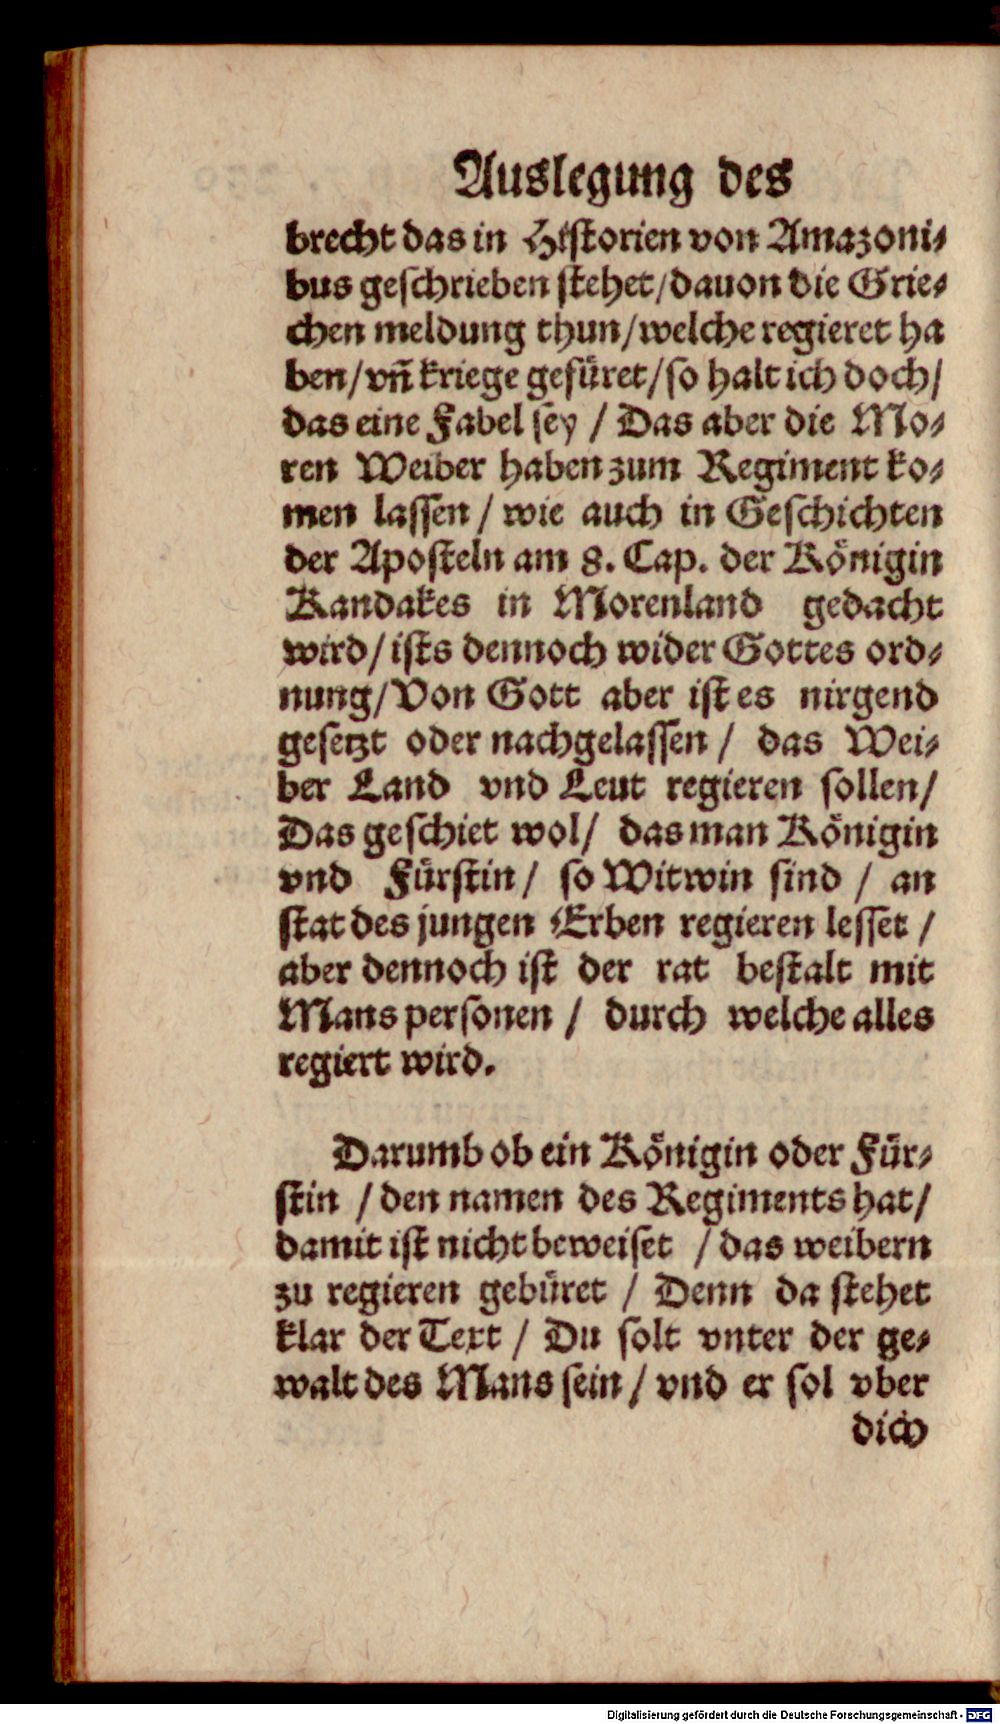 Auslegung des
brecht das in Historien von Amazoni-
bus geschrieben stehet/dauon die Grie-
chen meldung thun/welche regieret ha
ben/vñ kriege gefüret/so halt ich doch/
das eine Fabel sey / Das aber die Mo-
ren Weiber haben zum Regiment ko-
men lassen / wie auch in Geschichten
der Aposteln am 8. Cap. der Königin
Kandakes in Morenland gedacht
wird/ ists dennoch wider Gottes ord-
nung/Von Gott aber ist es nirgend
gesetzt oder nachgelassen / das Wei-
ber Land vnd Leut regieren sollen/
Das geschiet wol/ das man Königin
vnd Fürstin/ so Witwin sind / an
stat des jungen Erben regieren lesset /
aber dennoch ist der rat bestalt mit
Mans personen / durch welche alles
regiert wird.
Darumb ob ein Königin oder Für-
stin / den namen des Regiments hat/
damit ist nicht beweiset / das weibern
zu regieren gebüret / Denn da stehet
klar der Text / Du solt vnter der ge-
walt des Mans sein / vnd er sol vber
dich
Digitalisierung gefördert durch die Deutsche Forschungsgemeinschaft - DFG